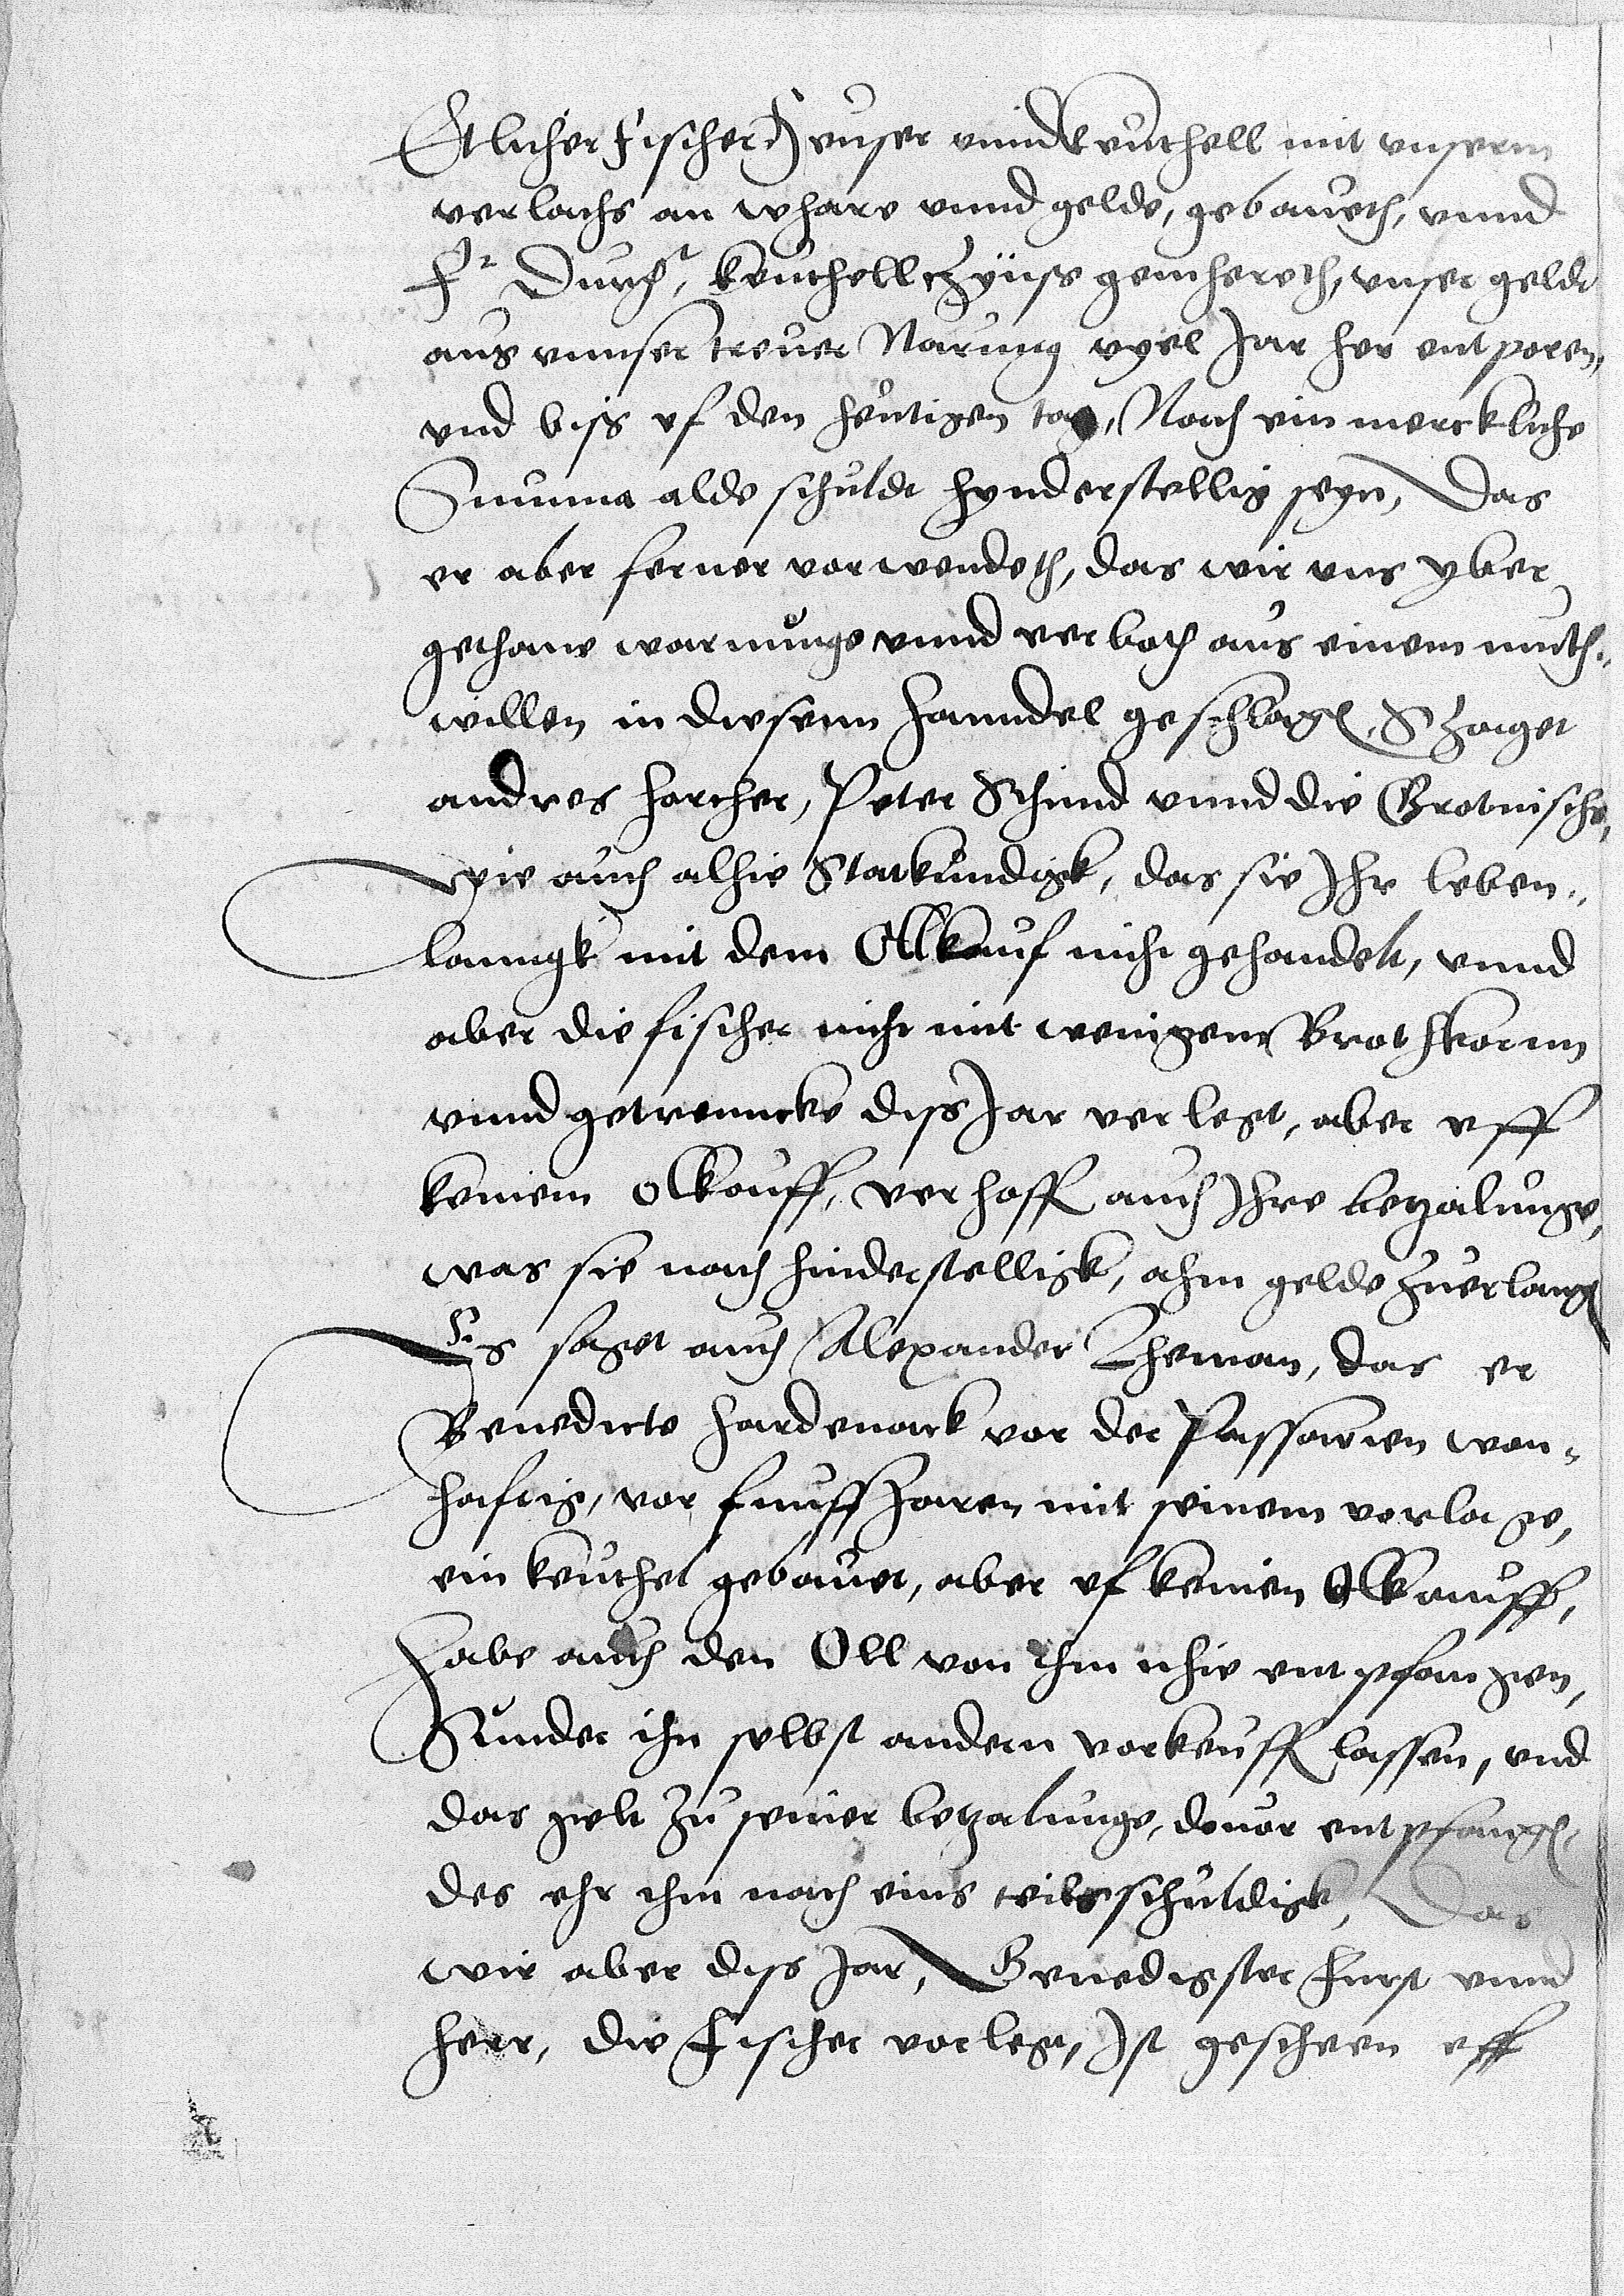 Etlicher Fischer heuser vnnd keuthell mit vnserm
verlachs an whare vnnd gelde, gebaueth, vnnd
F. Durch. keuthellzyns gemhereth, vnser geldt
aus vnnser treuer Narung vyel Jar her entporen,
vnd biss vf den heutigen tag, Noch ein merckliche
Summa alde schuldt hynderstellig seyn, Das
er aber ferner vorwendeth, das wir vns yber
gethane warnunge vnnd verboth aus einem muth-
willen in diesenn hanndel geschlagen, Szaget
andres harcher, Peter Schmid vnnd die Grotnische,
wie auch alhie Statkundigk, das sie Ihr leben-
lanngk mit dem Ollkauf nicht gehandelt, vnnd
aber die fischer nicht mit wenigem Brothkornn
vnnd getrenncke diss Jar verlegt, aber vff
keinem olkouff, verhoff auch Ihre betzalunge,
was sie noch hinderstelligk, ahm gelde zuerlangen
Es saget auch Alexander Lheman, das er
Benedicte hardenack vor der Passarien won-
hafftig, vor funff Jaren mit seinem verlage,
ein keuthel gebauet, aber vf keinen Olkauff,
Habe auch den Oll von ihm nhie entpfangen,
Sunder ihn selbst andern vorkeuffen lassen, vnd
das gelt zu seiner betzalunge, douor entpfangen,
des ehr ihm noch eins teils schuldigk, Das
wir aber diss Jar, Genedigster Furst vnnd
herr, die Fischer vorlegt, Ist gescheen vff